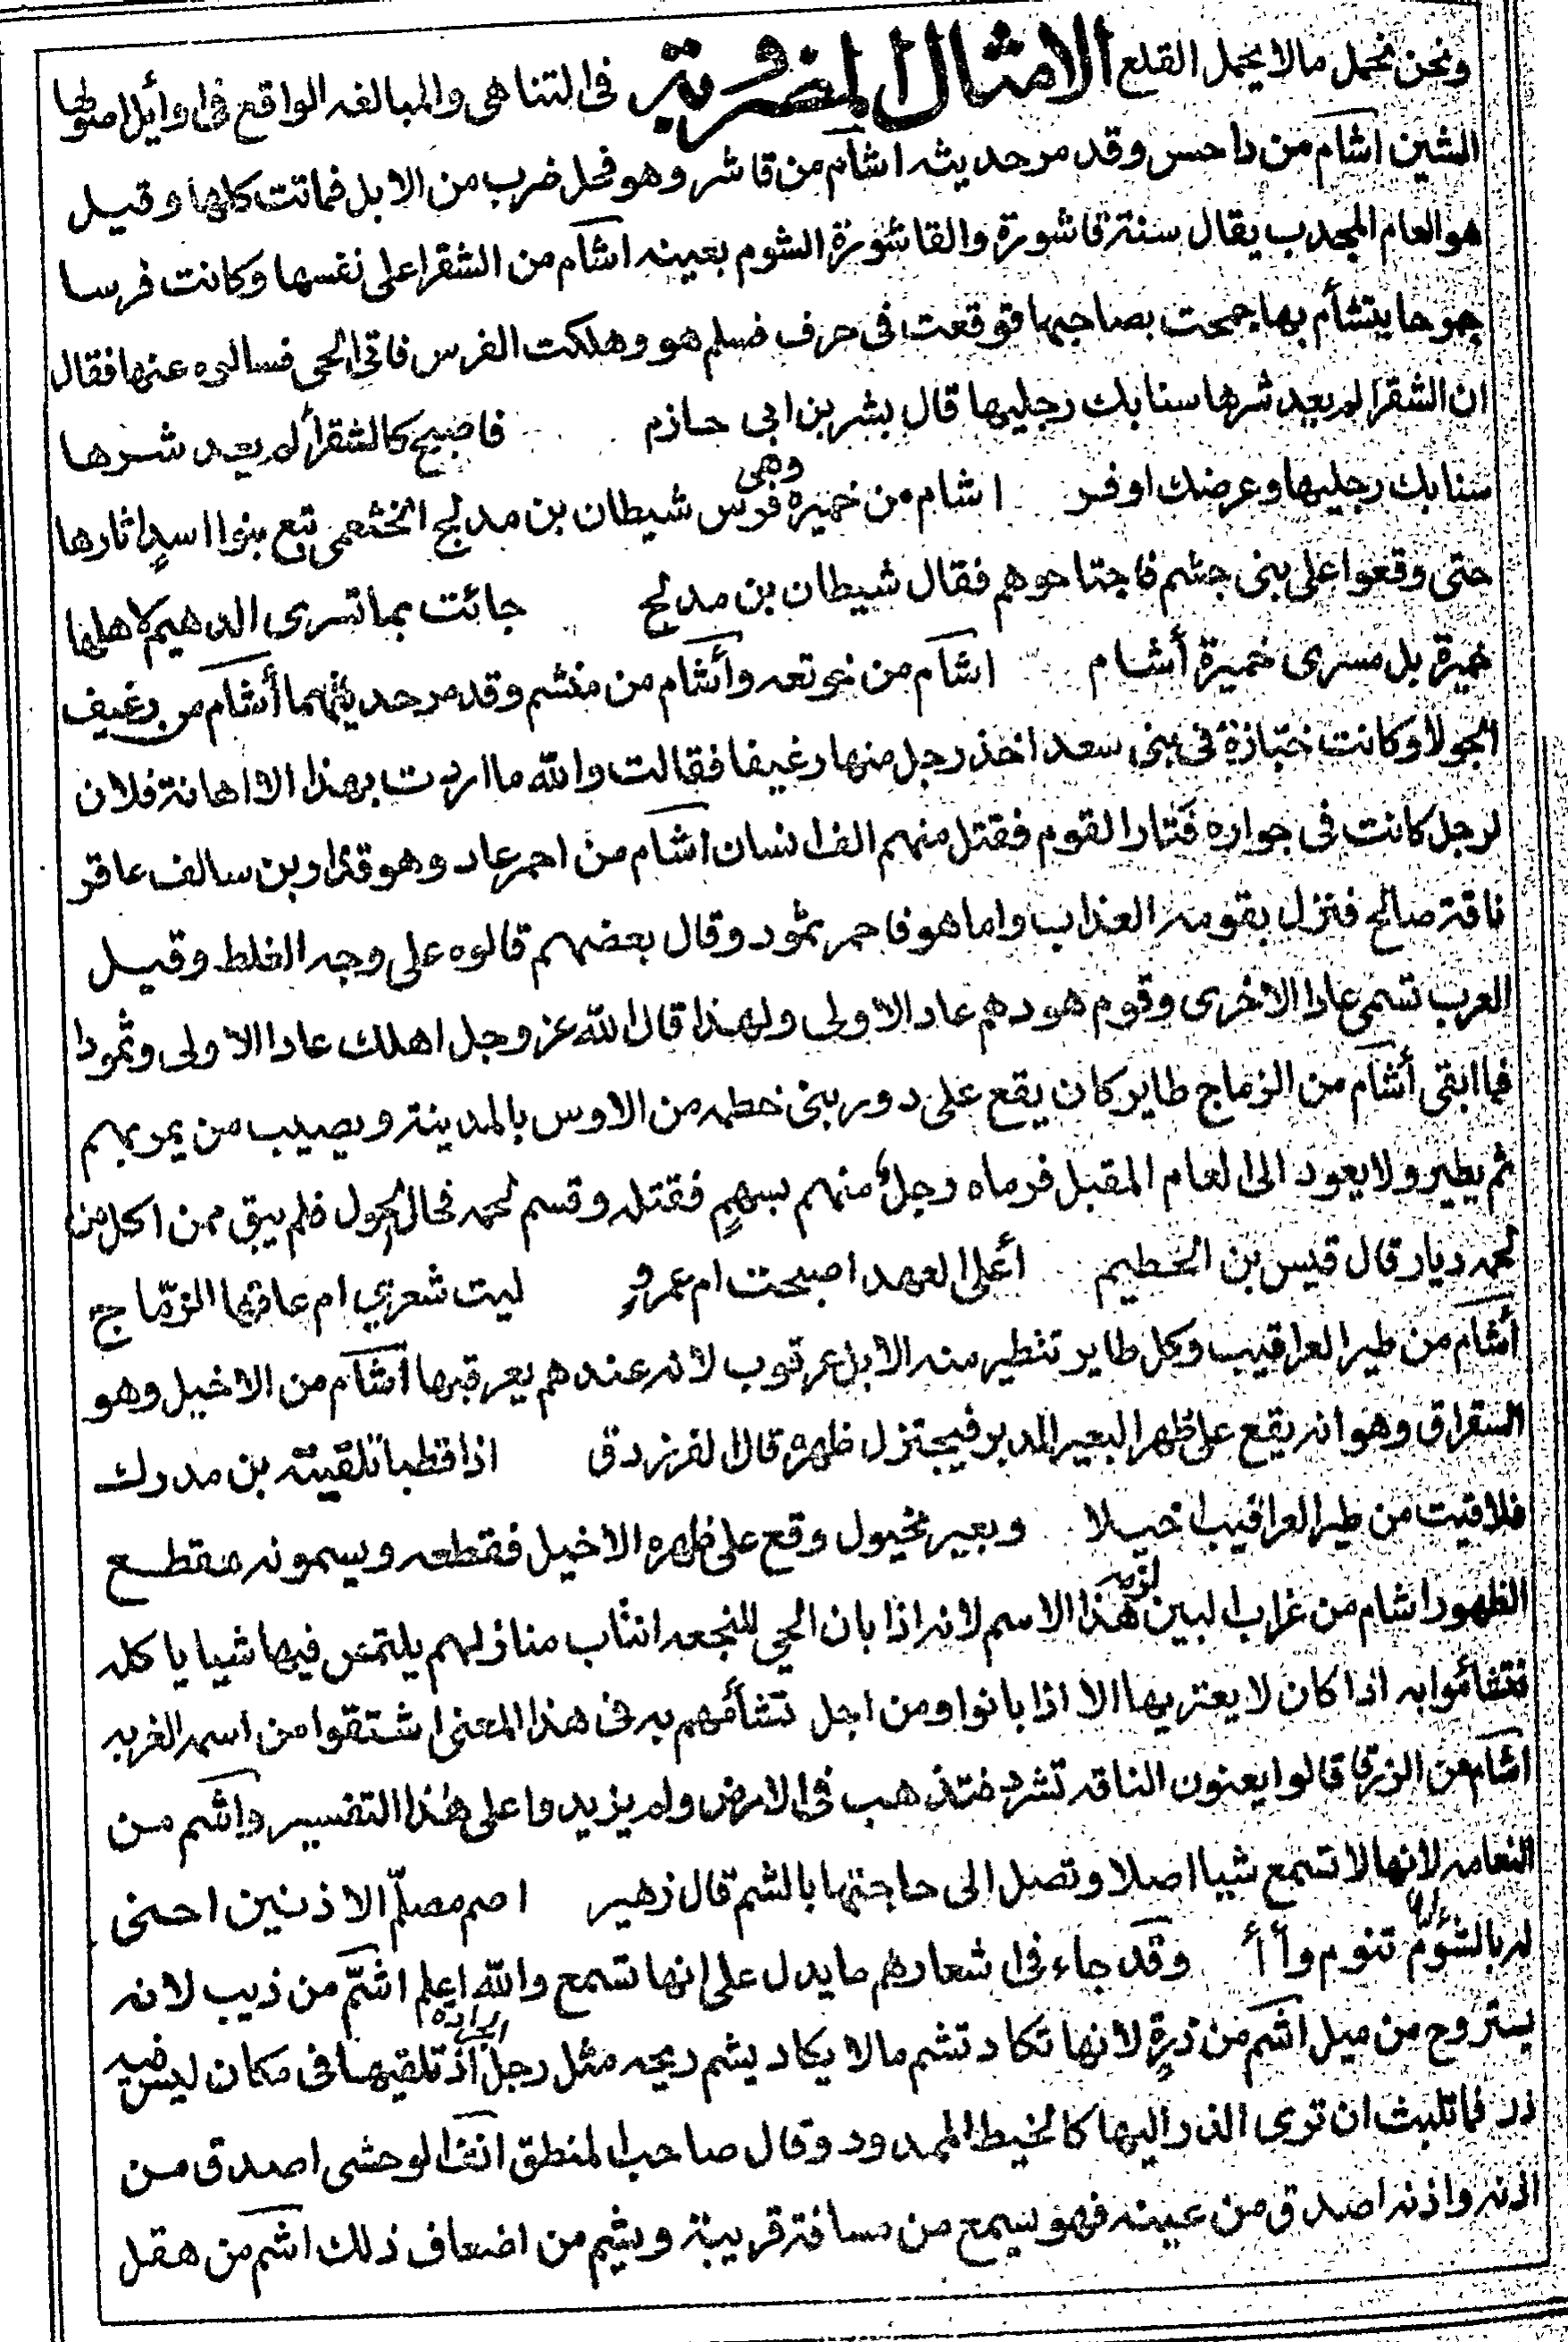 ونحن نحمل مالا يحمل القلع الامثال المضروبة فى التناهى والمبالغه الواقع فى اوأيل اصولها
الشين اشأم من داحس وقد مر حديثه اشأم من قاشر وهو فحل ضرب من الابل فماتت كلها وقيل
هو العام المجدب يقال سنة قاشورة والقاشورة الشوم بعينه اشأم من الشقرا على نفسها وكانت فرسا
جموحا يتشأم بها جمحت بصاحبها فوقعت فى حرف فسلم هو وهلكت الفرس فاتى الحى فسالوه عنها فقال
ان الشقرا لم يعد شرها سنابك رجليها قال بشر بن ابى حازم فاصبح كالشقرأ لم يعد شرها
سنابك رجليها وعرضك اوفر اشام من خميرة وهى فرس شيطان بن مدلج الخثعمى تبع بنوا اسدٍ اثارها
حتى وقعوا على بنى جشم فاجتاحوهم فقال شيطان بن مدلج جائت بما تسرى الدهيم لاهلها
خميرة بل مسرى خميرة أشام اشأم من خوتعه وأشأم من منشم وقد مر حديثهما أشأم من رغيف
الحولا وكانت خبّازة فى بنى سعد اخذ رجل منها رغيفا فقالت والله ما اردت بهذا الا اهانة فلان
لرجل كانت فى جواره فثار القوم فقتل منهم الف انسان اشأم من احمر عاد وهو قذار بن سالف عاقر
ناقة صالح فنزل بقومه العذاب واما هو فاحمر ثمود وقال بعضهم قالوه على وجه الغلط وقيل
العرب تسمى عادا الاخرى وقوم هود هم عاد الاولى ولهذا قال الله عز وجل اهلك عادا الاولى وثمودا
فما ابقى أشأم من الزماج طاير كان يقع على دور بنى خطمه من الاوس بالمدينة ويصيب من يمر بهم
ثم يطير ولا يعود الى العام المقبل فرماه رجلٌ منهم بسهمٍ فقتله وقسم لحمه فحال الحول فلم يبق ممن اكل من
لحمه ديار قال قيس بن الخطيم أعلى العهد اصبحت ام عمروٍ ليت شعري ام عاقها الزمّاج
أشأم من طير العراقيب وكل طاير تتطير منه الابل عرقوب لانه عندهم يعرقبها اشأم من الاخيل وهو
الشقراق وهو انه يقع على ظهر البعير المدبر فيجتزل ظهره قال الفرزدق اذا قطبا تلقيته بن مدرك
فلاقيت من طير العراقيب اخيلا وبعير مخيول وقع على ظهره الاخيل فقطعه ويسمونه مقطع
الظهور اشام من غراب البين لزمه هذا الاسم لانه اذا بان الحي للنجعه انتاب منازلهم يلتمس فيها شيا ياكله
فتشائموا به اذا كان لا يعتريها الا اذا بانوا ومن اجل تشأمهم به فى هذا المعنى اشتقوا من اسمه الغربه
اشأم من الزرقا قالوا يعنون الناقه تشرد فتذهب فى الارض ولم يزيدوا على هذا التفسير واشم من
النعامه لانها لا تسمع شيا اصلا وتصل الى حاجتها بالشم قال زهير اصم مصلّم الاذنين احنى
له بالشوم تنوم وأأ وقد جاء فى اشعارهم ما يدل على انها تسمع والله اعلم اشمّ من ذيب لانه
يستروح من ميل اشم من ذرةٍ لانها تكاد تشم مالا يكاد يشم ريحه مثل رجل اذ تلقيها فى مكان ليس فيه
ذر فما تلبث ان ترى الذر اليها كالخيط الممدود وقال صاحب المنطق انف الوحشى اصدق من
اذنه واذنه اصدق من عينه فهو يسمع من مسافة قريبة ويشم من اضعاف ذلك اشم من هقل